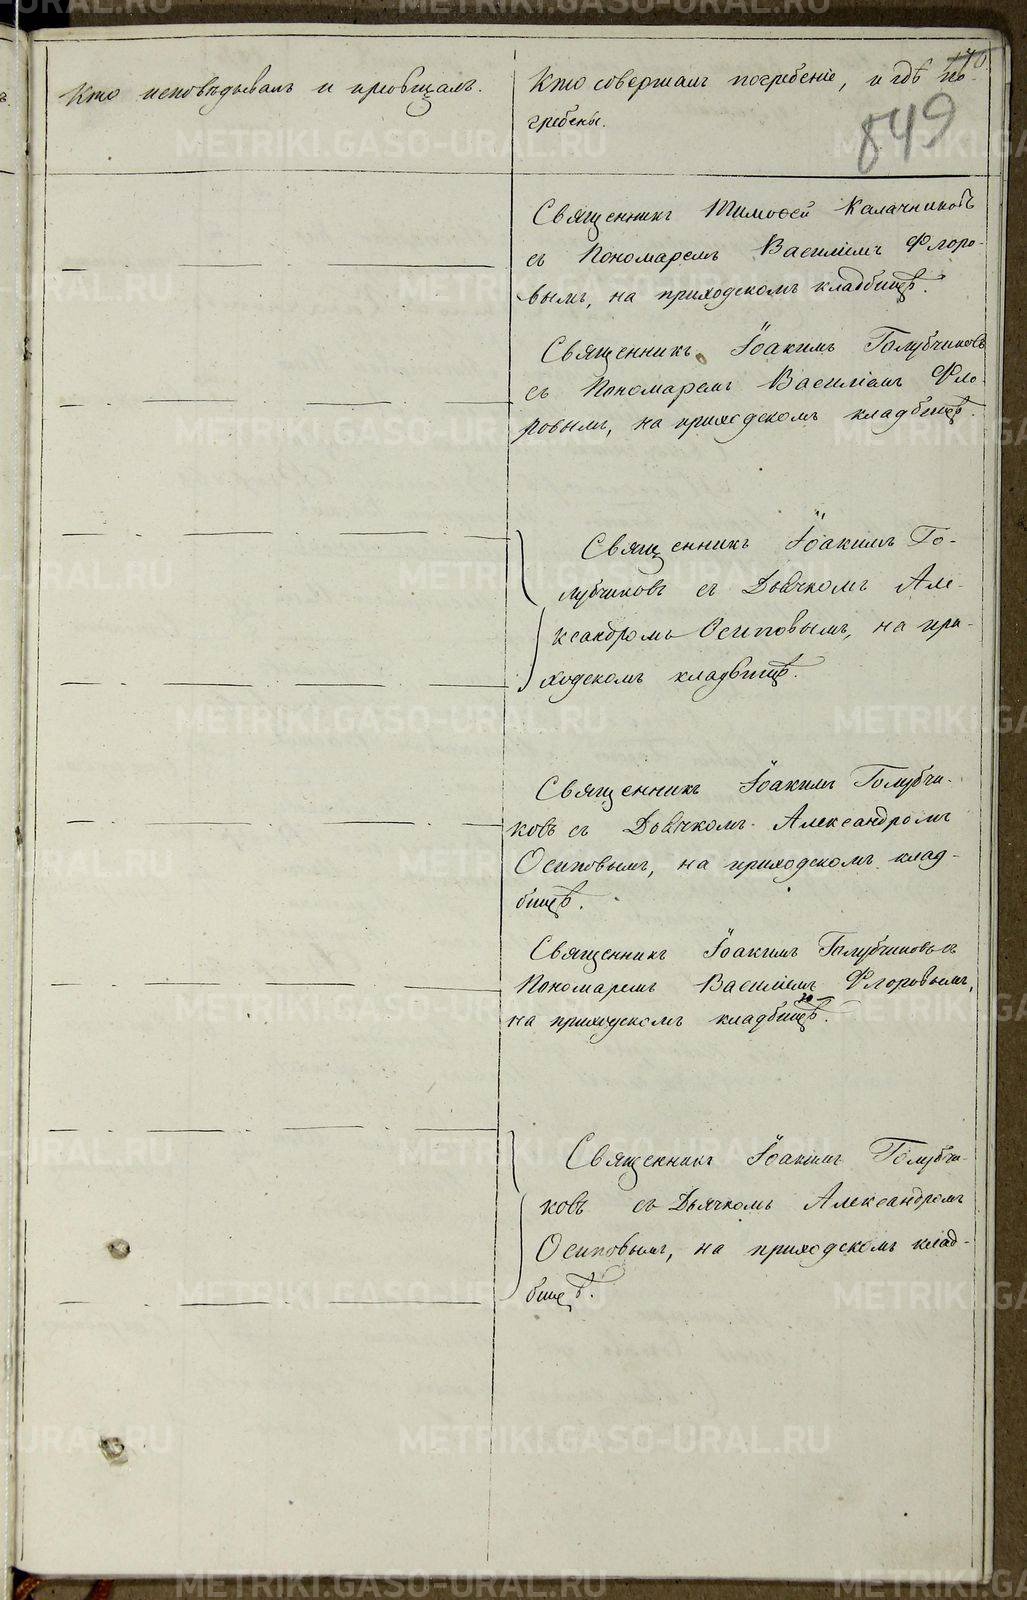 Кто исповѣдывалъ и пріобщалъ.
Кто совершалъ погребеніе, и гдѣ по-
гребены.
849
Священникъ Тимофей Калачниковъ
съ Пономаремъ Василіемъ Флоро-
вымъ, на приходскомъ кладбищѣ.
Священникъ Іоакимъ Голубчиковъ
съ Пономаремъ Василіемъ Фло-
ровымъ, на приходскомъ кладбищѣ.
Священникъ Іоакимъ Го-
лубчиковъ съ Дьячкомъ Але-
ксандромъ Осиповымъ, на при-
ходскомъ кладбищѣ.
Священникъ Іоакимъ Голубчи-
ковъ съ Дьячкомъ Александромъ
Осиповымъ, на приходскомъ клад-
бищѣ.
Священникъ Іоакимъ Голубчиковъ съ
Пономаремъ Василіемъ Флоровымъ,
на приходскомъ кладбищѣ.
Священникъ Іоакимъ Голубчи-
ковъ съ Дьячкомъ Александромъ
Осиповымъ, на приходскомъ клад-
бищѣ.
METRIKI.GASO-URAL.RU